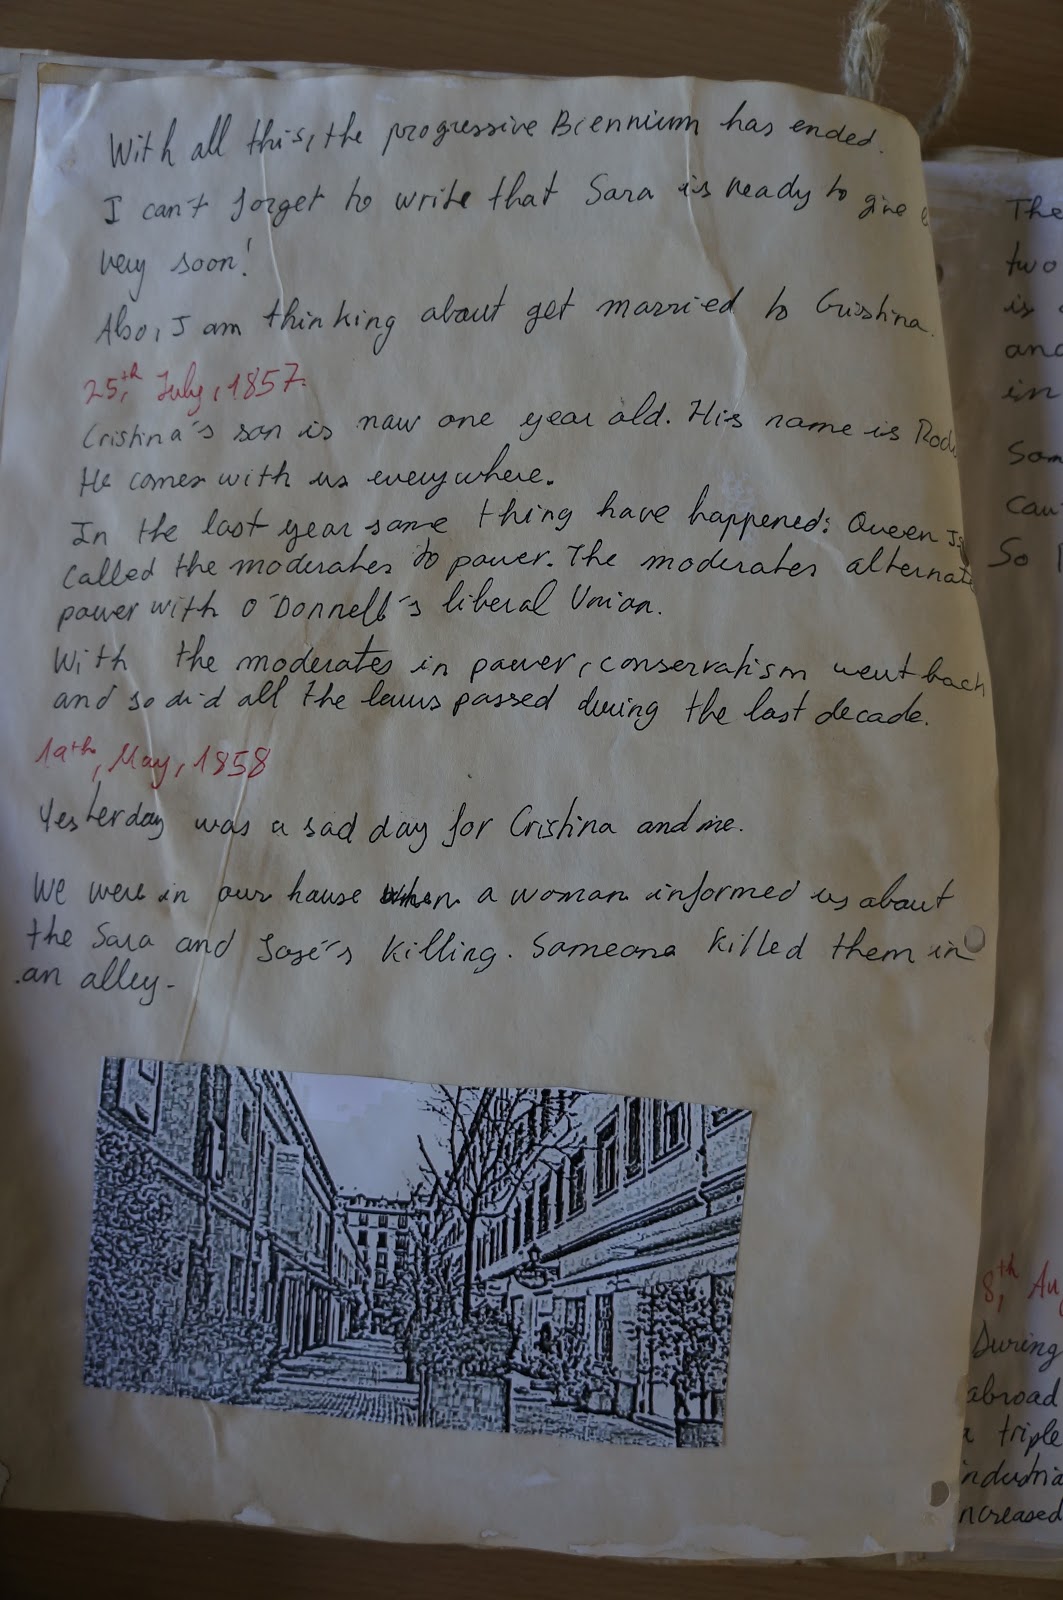 With all this, the progressive Biennium has ended.
I can't forget to write that Sara is ready to give
very soon!
Also, I am thinking about get married to Cristina.
25th, July, 1857.
Cristina's son is now one year old. His name is
He comes with us everywhere.
In the last year some thing have happened: Queen
called the moderates to power. The moderates alternate
power with O'Donnell's liberal Union.
With the moderates in power, conservatism went back
and so did all the laws passed during the last decade.
19th, May, 1858
Yesterday was a sad day for Cristina and me.
We were in our house when a woman informed us about
the Sara and José's killing. Someone killed them in
an alley.
The
two
is
and
in
So
8th,
During
abroad
a triple
increased